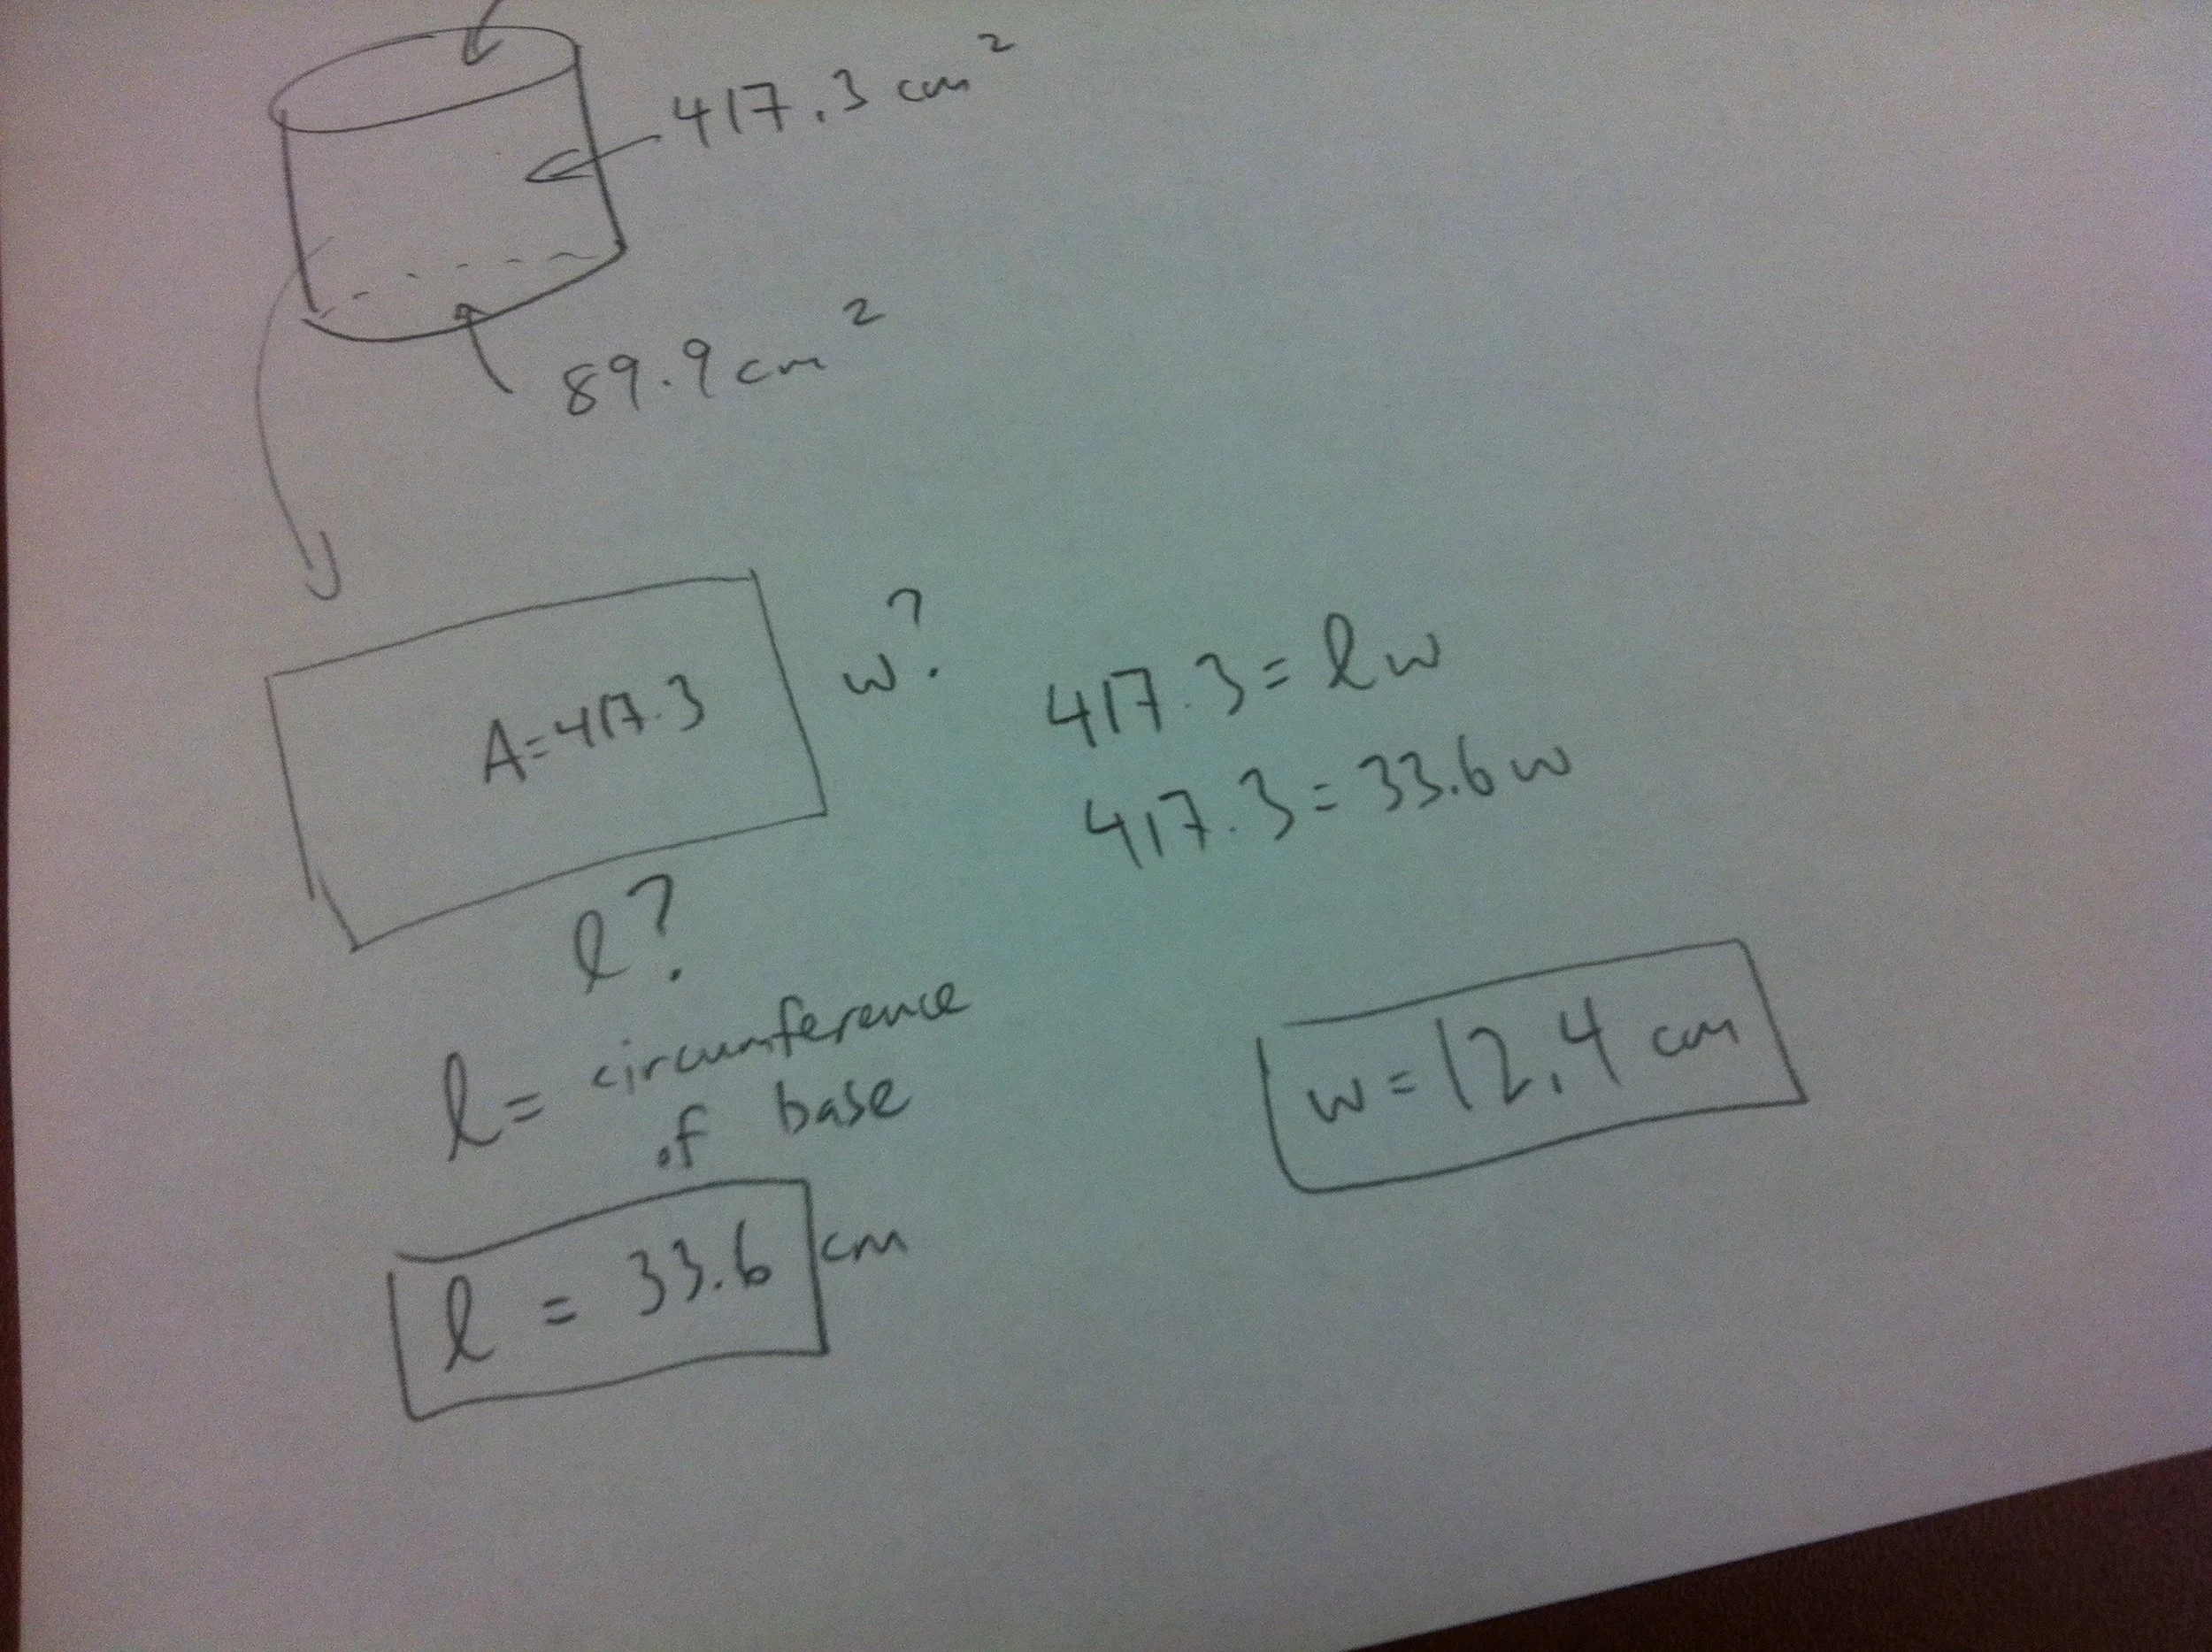 417.3 cm²
89.9 cm²
A=417.3
w?
l?
417.3 = lw
417.3 = 33.6w
l = circumference
of base
l = 33.6 cm
w = 12.4 cm